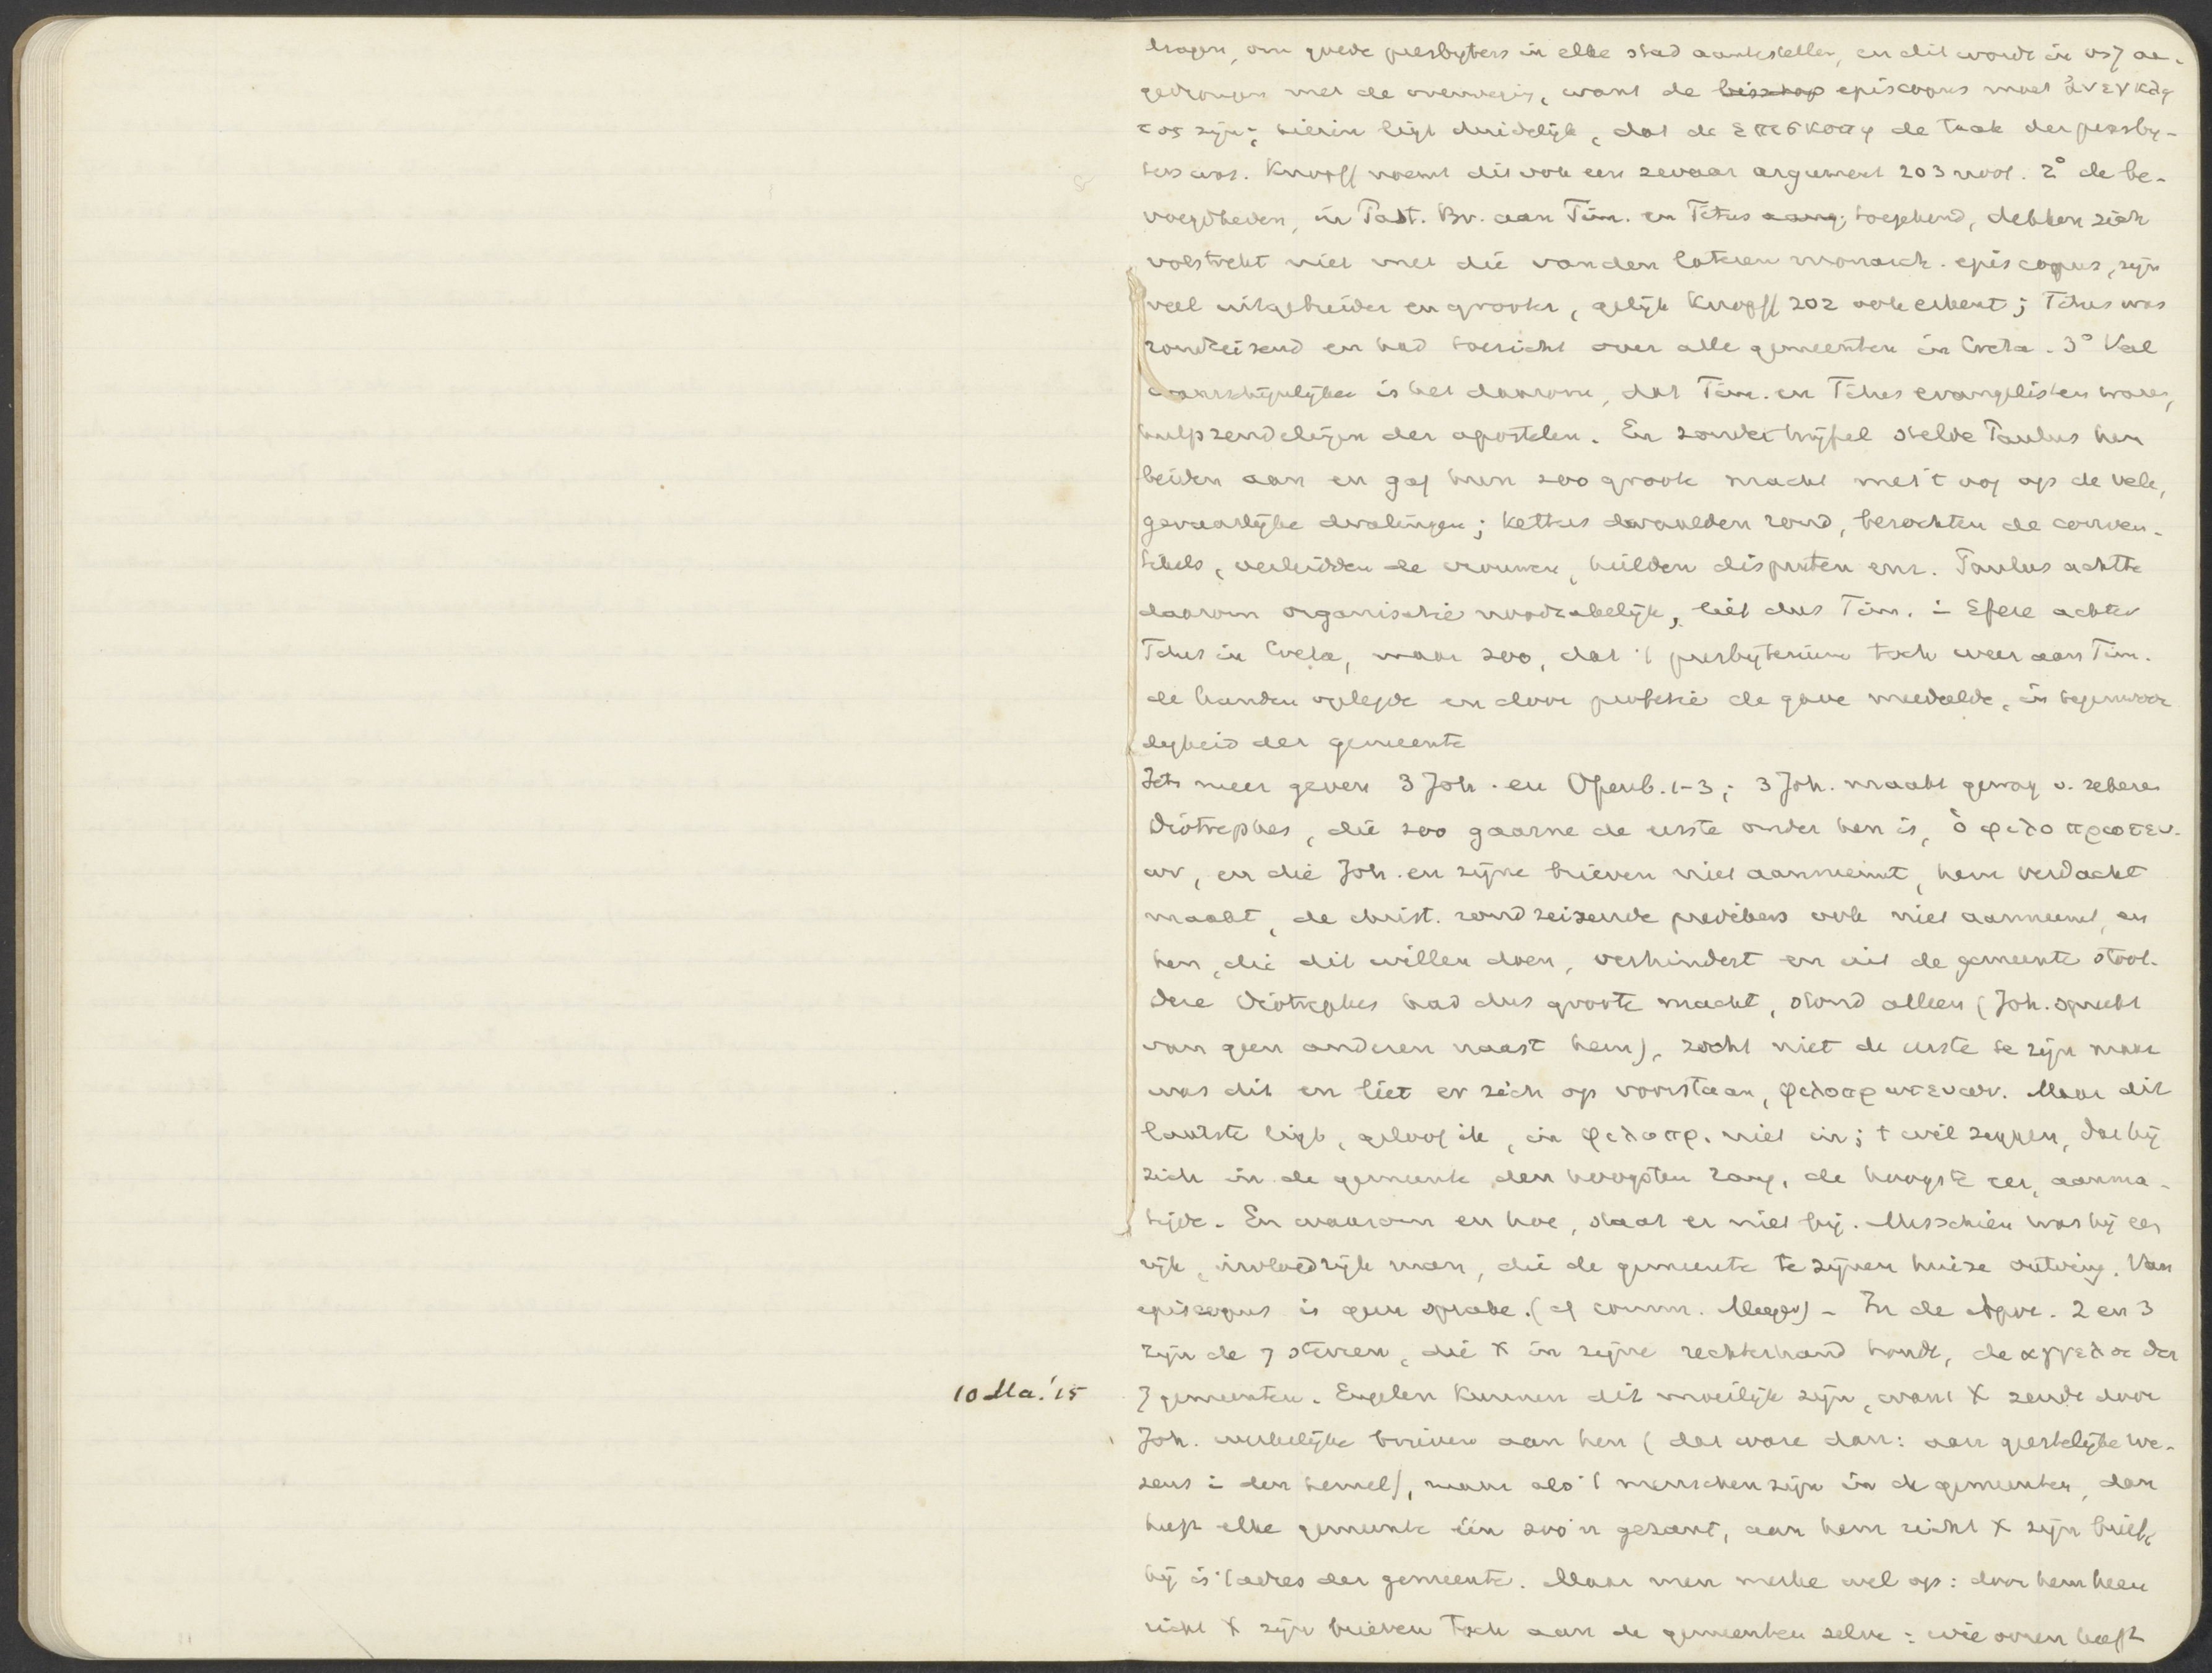 dragen, om goede presbyters in elke stad aantestellen, en dit wordt in vs 7 aan-
gedrongen met de overweging, want de bisschop episcopus moet ἀνεγκλη
τος zijn; hierin ligt duidelijk, dat de ἐπισκοπη de taak der presby-
ters was. Knopff noemt dit ook een zwaar argument 203 noot. 2° de be-
voegdheden, in Past. Br. aan Tim. en Titus aang. toegekend, dekken zich
volstrekt niet met die van den lateren monarch. episcopus, zijn
veel uitgebreider en grooter, gelijk Knopff 202 ook erkent; Titus was
rondreizend en had toezicht over alle gemeenten in Creta. 3° Veel
waarschijnlijker is het daarom, dat Tim. en Titus evangelisten waren,
hulpzendelingen der apostelen. En zonder twijfel stelde Paulus hen
beiden aan en gaf hun zoo groote macht met 't oog op de vele,
gevaarlijke dwalingen; ketters dwaalden rond, bezochten de conven-
tikels, verleidden de vrouwen, hielden disputen enz. Paulus achtte
daarom organisatie noodzakelijk, liet dus Tim. in Efeze achter
Titus in Creta, maar zoo, dat 't presbyterium toch weer aan Tim.
de handen oplegde en door profetie de gave meedeelde, in tegenwoor
digheid der gemeente
Iets meer geven 3 Joh. en Openb. 1-3; 3 Joh. maakt gewag v. zekeren
Diotrephes, die zoo gaarne de eerste onder hen is, ὁ φιλοπρωτευ-
ων, en die Joh. en zijne brieven niet aanneemt, hem verdacht
maakt, de christ. rondreizende predikers ook niet aanneemt, en
hen, die dit willen doen, verhindert en uit de gemeente stoot.
Deze Diotrephes had dus groote macht, stond alleen (Joh. spreekt
van geen anderen naast hem), zocht niet de eerste te zijn maar
was dit en liet er zich op voorstaan, φιλοπρωτευων. Maar dit
laatste ligt, geloof ik, in φιλοπρ. niet in; 't wil zeggen, dat hij
zich in de gemeente den hoogsten rang, de hoogste eer, aanma-
tigde. En waarom en hoe, staat er niet bij. Misschien was hij een
rijk, invloedrijk man, die de gemeente te zijnen huize ontving. Van
episcopus is geen sprake. (cf comm. Meyer) - In de Apoc. 2 en 3
zijn de 7 sterren, die X in zijne rechterhand houdt, de αγγελοι der
10 Ma.'15
7 gemeenten. Engelen kunnen dit moeilijk zijn, want X zendt door
Joh. werkelijke brieven aan hen (dat ware dan: aan geestelijke we-
zens in den hemel), maar als 't menschen zijn in de gemeenten, dan
heeft elke gemeente één zoo'n gezant, aan hem richt X zijn brief,
hij is 't adres der gemeente. Maar men merke wel op: door hem heen
richt X zijn brieven toch aan de gemeenten zelve: wie ooren heeft